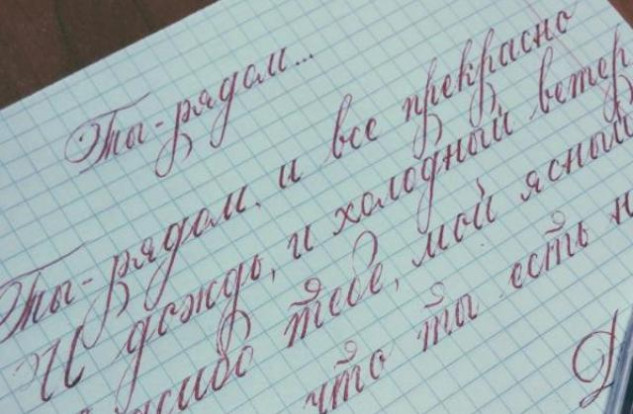 Ты-рядом...
Ты-рядом, и все прекрасно
И дождь, и холодный ветер
тебе, мой ясный
что ты есть